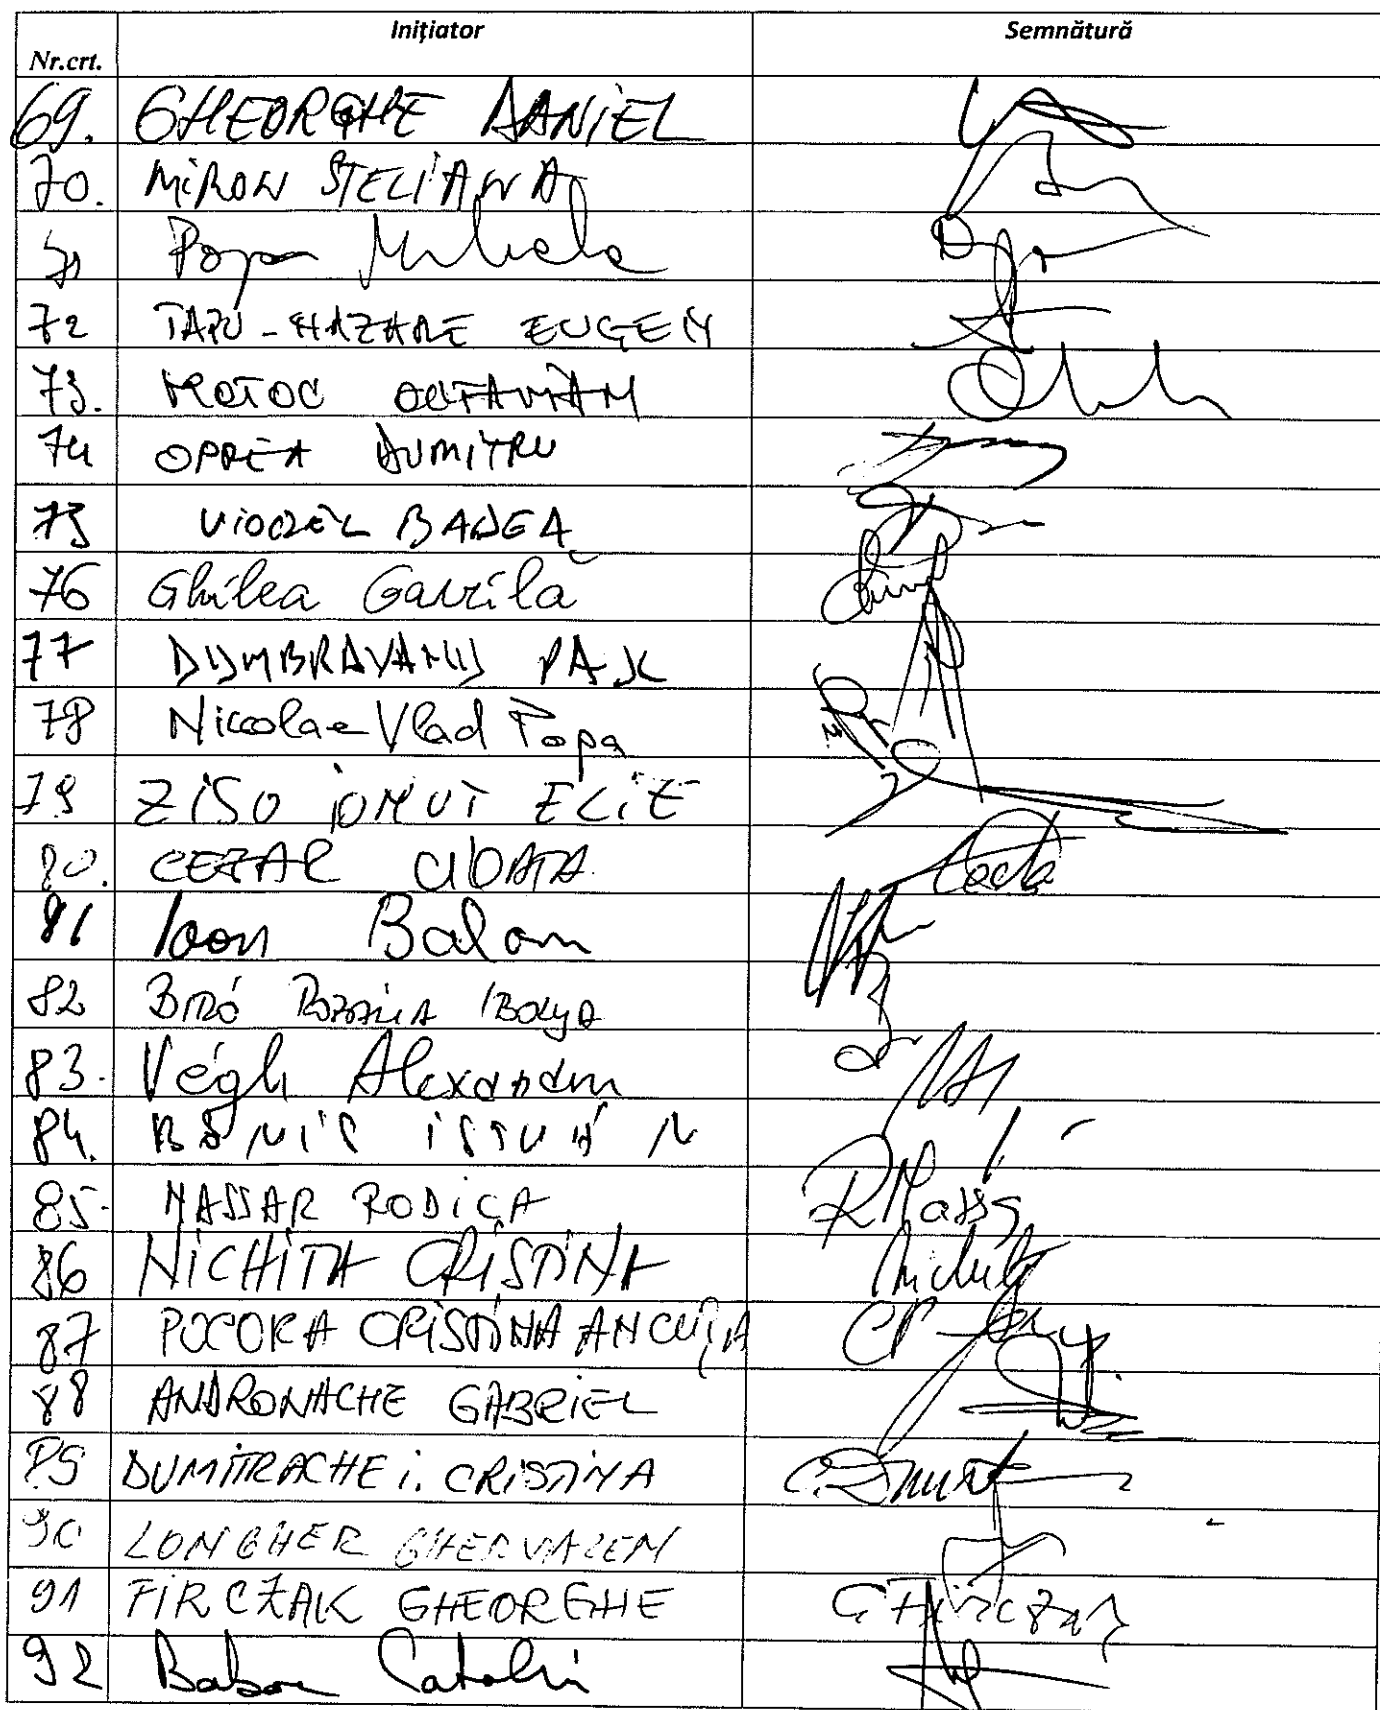 Nr.crt. Inițiator Semnătură
69. GHEORGHE DANIEL
70. MIRON STELIANA
71 Popa Mihaela
72 TAPU-NAZARE EUGEN
73. MOTOC OCTAVIAN
74 OPREA DUMITRU
75 VIOREL BADEA
76 Ghilea Gavrilă
77 DUMBRAVANU PAUL
78 Nicolae Vlad Popa
79 ZISO IONUT ELIE
80. CEZAR CIOATA
81 Ioan Balan
82 BIRÓ ROZALIA IBOLYA
83. Végh Alexandru
84. BÓNIS ISTVÁN
85. NASSAR RODICA R Nassar
86 NICHITA CRISTINA Nichita
87 POCORA CRISTINA ANCUȚA CP
88 ANDRONACHE GABRIEL
89 DUMITRACHE I. CRISTINA
90 LONGHER GHERVAZEN
91 FIRCZAK GHEORGHE G Firczak
92 Catalin